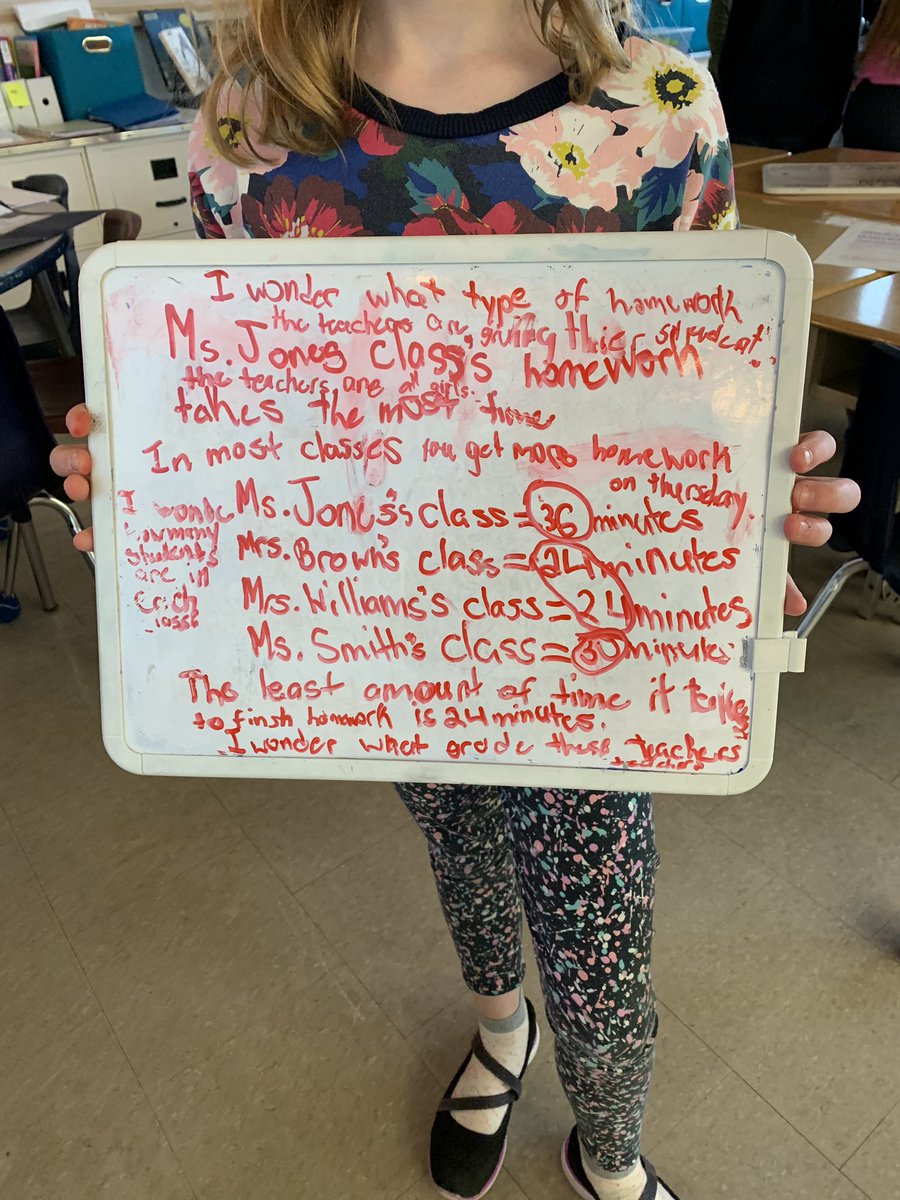 I wonder what type of homeworh
the teachers are giving thier student
Ms. Jones class's homework
the teachers are all girls.
takes the most time
In most classes you get more homework
on thursday
I wonde
how many
students
are in
Erch
Ms. Jones's class = 36 minutes
Mrs. Brown's class = 24 minutes
Mrs. Williams's class = 24 minutes
Ms. Smith's class = 30 minutes
The least amount of time it takes
to finsh homework is 24 minutes.
I wonder what grade these teachers